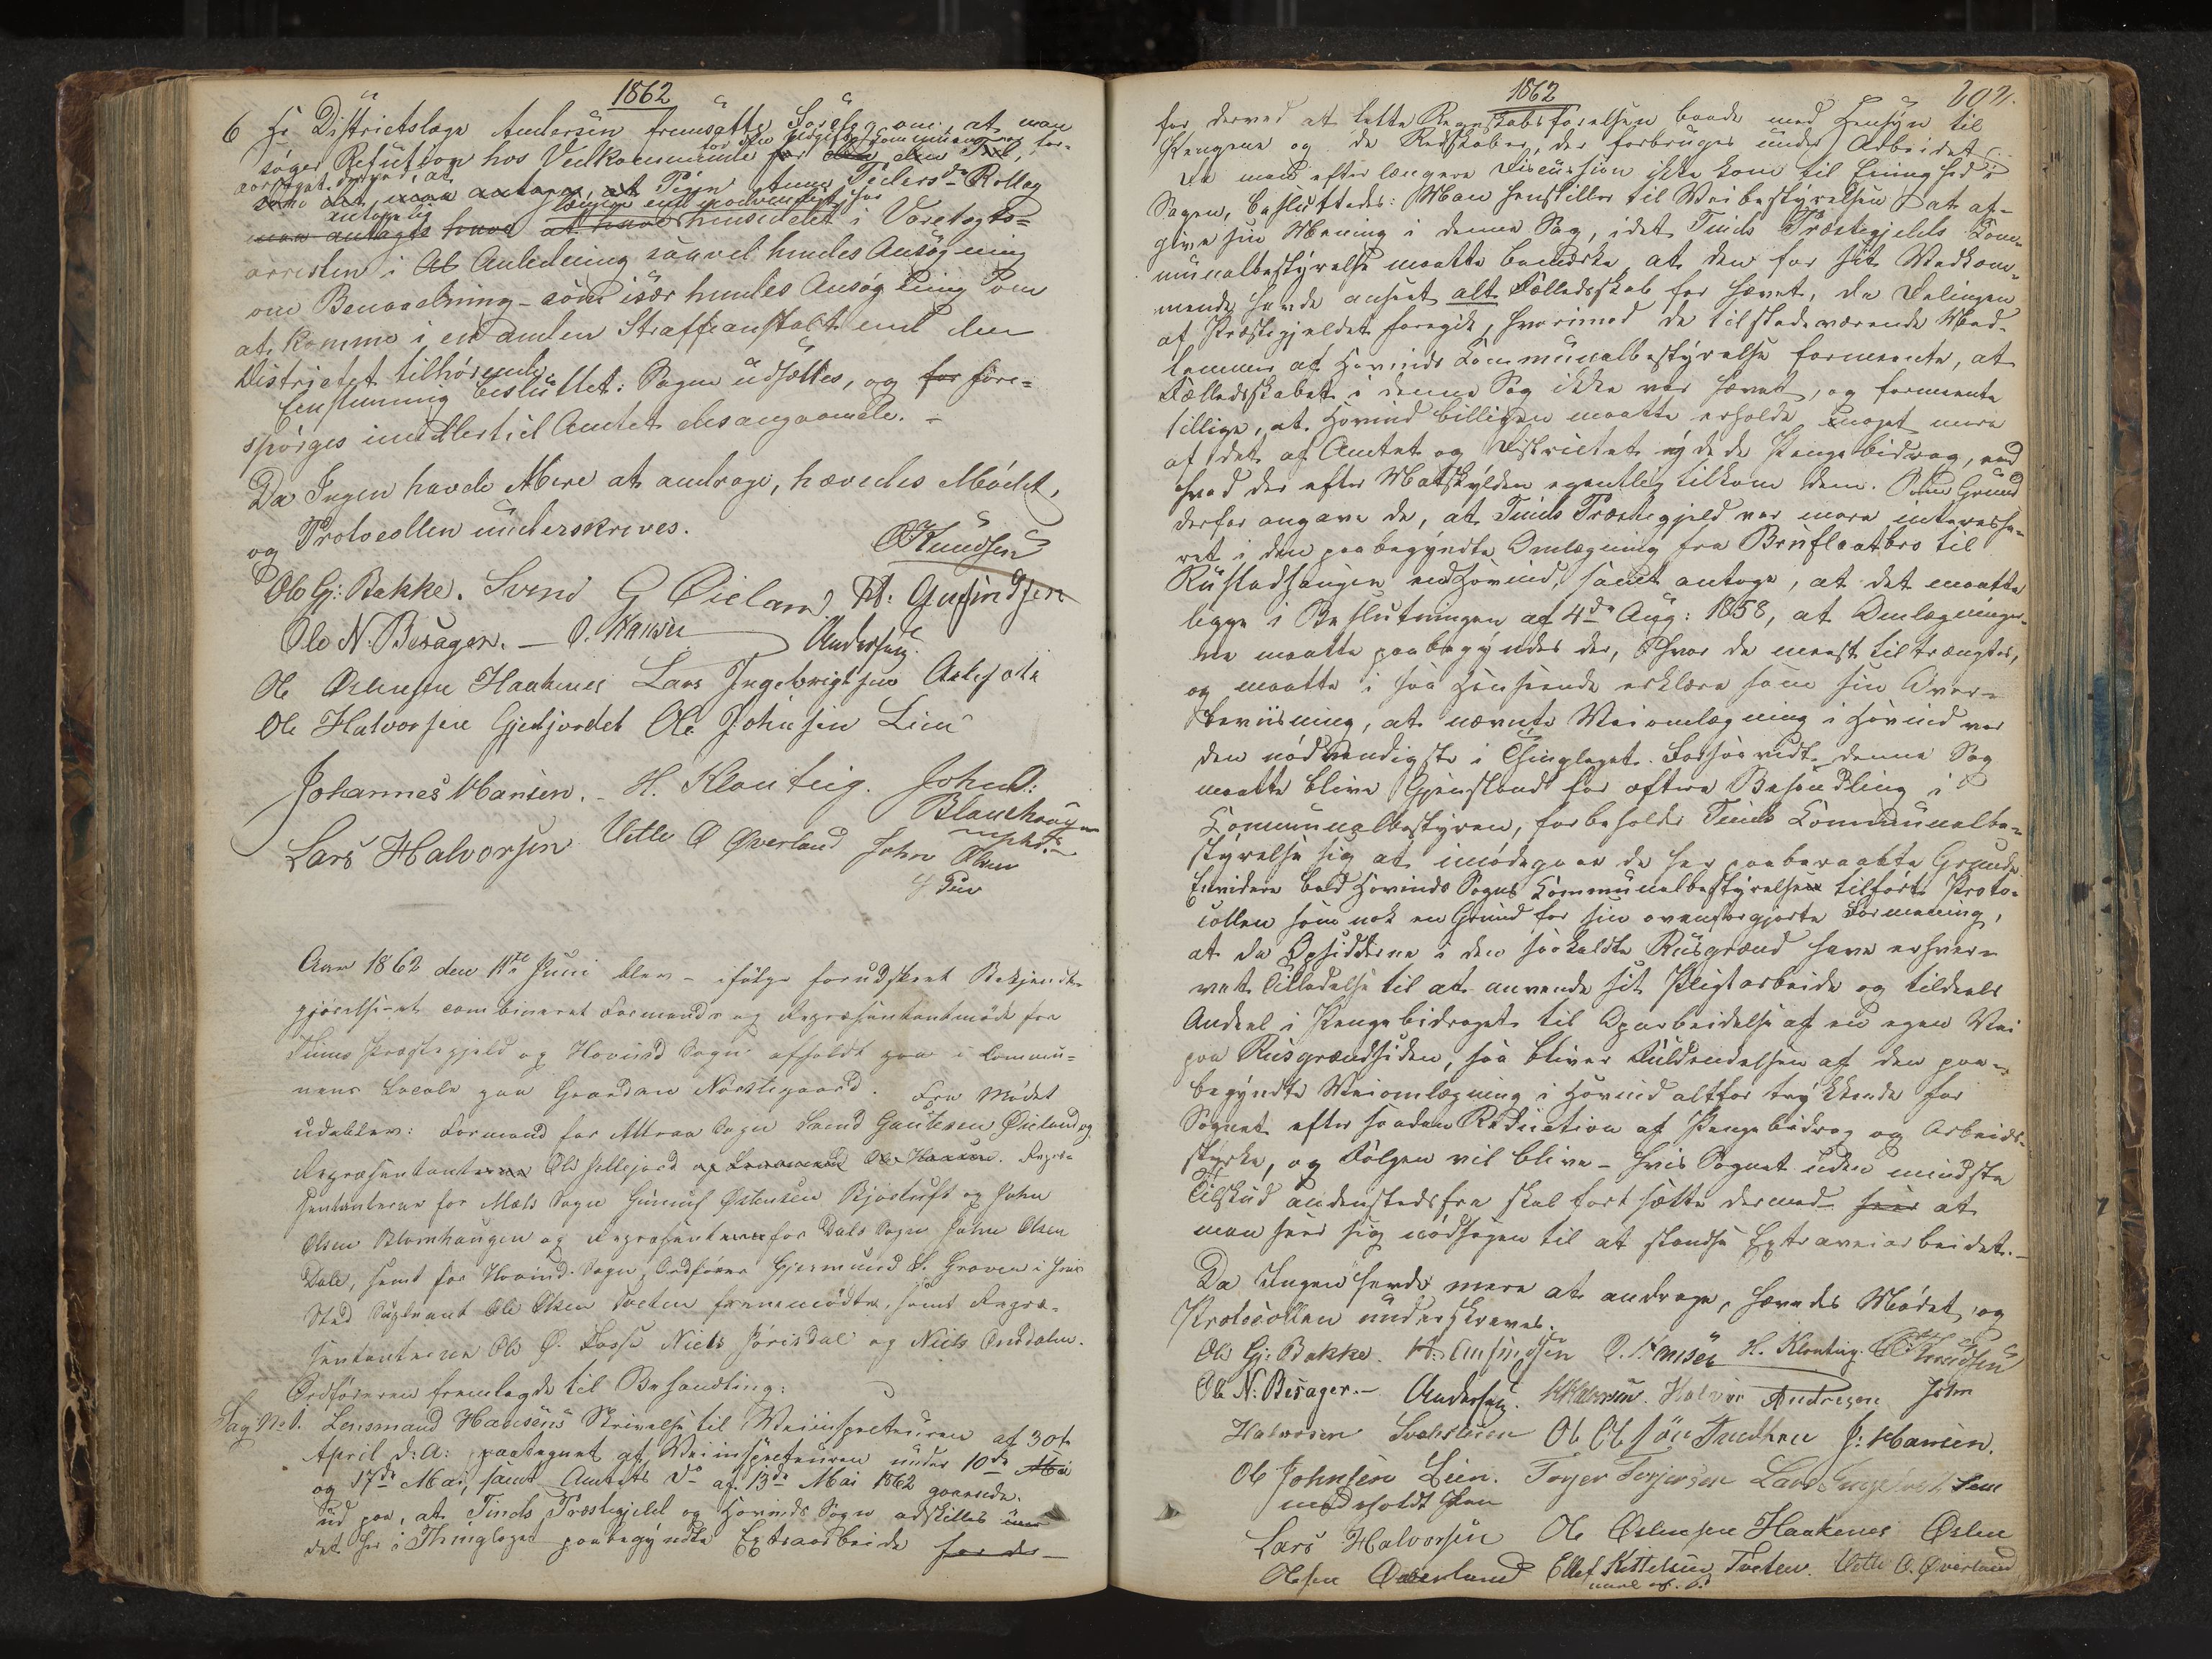 1862
6 Hr Districtslæge Andersen fremsatte Forslag om, at man
søger Refution hos Vedkommende for
at Pigen Anne Peders Dr Rollag
længer end nødvendigt har
hensiddet i Varetægts=
arresten i Anledning saavel hendes Ansøgning
om Benaadning – som især hendes Ansøgning om
at komme i en anden Straffeanstalt end den
Districtet tilhørende.
Eenstemmig besluttet: Sagen udsættes, og for fore=
spørges imidlertid Amtet desangaaende. –
Da Ingen havde Mere at andrage, hævedes Mødet,
og Protocollen underskrives.
OKnudsen
Ole Gj: Bakke. Svend G Øieland.
Ole N. Besager. – O. Hansen Andersen
Ole Østensen Haakenes Lars Ingebrigtsen
Ole Halvorsen Gjetjordet Ole Johnsen Lien
Johannes Hansen. – H. Klonteig. John O:
Blaxhaugen
Lars Halvorsen Vetle O Øverland John Olsen
Aar 1862 den 11te Juni blev – ifølge forudskeet Bekjendt=
gjørelse – et combineret Formands og Repræsentantmøde for
Tinns Præstegjeld og Hovind Sogn afholdt paa i Commu=
nens Locale paa Gaarden Nørstegaard. Fra Mødet
udeblev: Formand for Attraa Sogn Svend Gautesen Øieland og
Repræsentanterne Ole Hansen. Repræ=
sentanterne for Mæls Sogn Gunnuf Østensen og John
Olsen Blomhaugen og Repræsentanten for Dals Sogn John Olsen
Dale, samt for Hovind Sogn Ordfører Gjermund S. Graven i hvis
Sted Supleant Ole Olsen fremmødte, samt Repræ=
sentanterne Ole O. Fosse Niels Jørisdal og Niels Ørsdalen.
Ordføreren fremlagde til Behandling:
Sag No 1. Lensmand Hansens Skrivelse til Veiinspecteuren af 30te
April d: A: paategnet af Veiinspecteuren under 10de Mai
og 17de Mai, samt Amtets Do af 13de Mai 1862 gaaende
ud paa, at Tinds Præstegjeld og Hovinds Sogn adskilles
det her i Thinglaget paabegyndte Extraarbeide for der –
1862
202.
for derved at lette Regnskabsførelsen baade med Hensyn til
Pengene og de Redskaber, der forbruges under Arbeidet.
Da man efter længere Discussion ikke kom til Enighed i
Sagen, besluttedes: Man henstiller til Veibestyrelsen at af=
give sin Mening i denne Sag, idet Tinds Præstegjelds Com=
munalbestyrelse maatte bemærke, at den for sit Vedkom=
mende havde anseet alt Fælledsskab for hævet, da Delingen
af Præstegjeldet foregik, hvorimod de tilstedeværende Med=
lemmer af Hovinds Communalbestyrelse formeente, at
Fælledsskabet i denne Sag ikke var hævet, og formeente
tillige, at Hovind billigen maatte erholde noget mere
af det af Amtet og Districtet ydede Pengebidrag, end
hvad der efter Matskylden egentlig tilkom dem. Som Grund
derfor angave de, at Tinds Præstegjeld var mere interesse=
ret i den paabegyndte Omlægning fra Brufloatbro til
Rustadhaugen ved Hovind, samt antoge, at det maatte
ligge i Beslutningen af 4de Aug: 1858, at Omlægninger=
ne maatte paabegyndes der, hvor de meest tiltrængtes,
og maatte i saa Henseende erklære som sin Over=
beviisning, at nævnte Veiomlægning i Hovind var
den nødvendigste i Thinglaget. Forsaavidt denne Sag
maatte blive Gjenstand for oftere Behandling i
Communalbestyren, forbeholder Tinds Communalbe=
styrelse sig at imødegaae de her paaberaabte Grunde.
Envidere bad Hovinds Sogns Communalbestyrelse tilført Proto=
collen som nok en Grund for sin ovenforgjorte Formening,
at da Opsidderne i den saakaldte Rusgrænd have erhver=
vet Tilladelse til at anvende sit Pligtarbeide og tildeels
Andeel i Pengebidraget til Oparbeidelse af en egen Vei
paa Rusgrændsiden, saa bliver Fuldendelsen af den paa=
begyndte Veiomlægning i Hovind altfor trykkende for
Sognet efter saadan Reduction af Pengebidrag og Arbeids=
styrke, og Følgen vil blive – hvis Sognet uden mindste
Tilskud andenstedsfra skal fortsætte dermed – at
man seer sig nødsagen til at standse Extraveiarbeidet. –
Da Ingen havde mere at andrage, hævedes Mødet, og
Protocollen underskreves.
Ole Gj: Bakke. O. Hansen H. Klonteig. OKnudsen
Ole N: Besager. – Andersen. Halvor Andresen John
Halvorsen J: Hansen.
Ole Johnsen Lien. Torger Torjersen Lars
medholdt Pen
Lars Halvorsen Ole Østensen Haakenes Østen
Olsen Øverland Ellef Kittelsen Tveten. Vetle O. Øverland